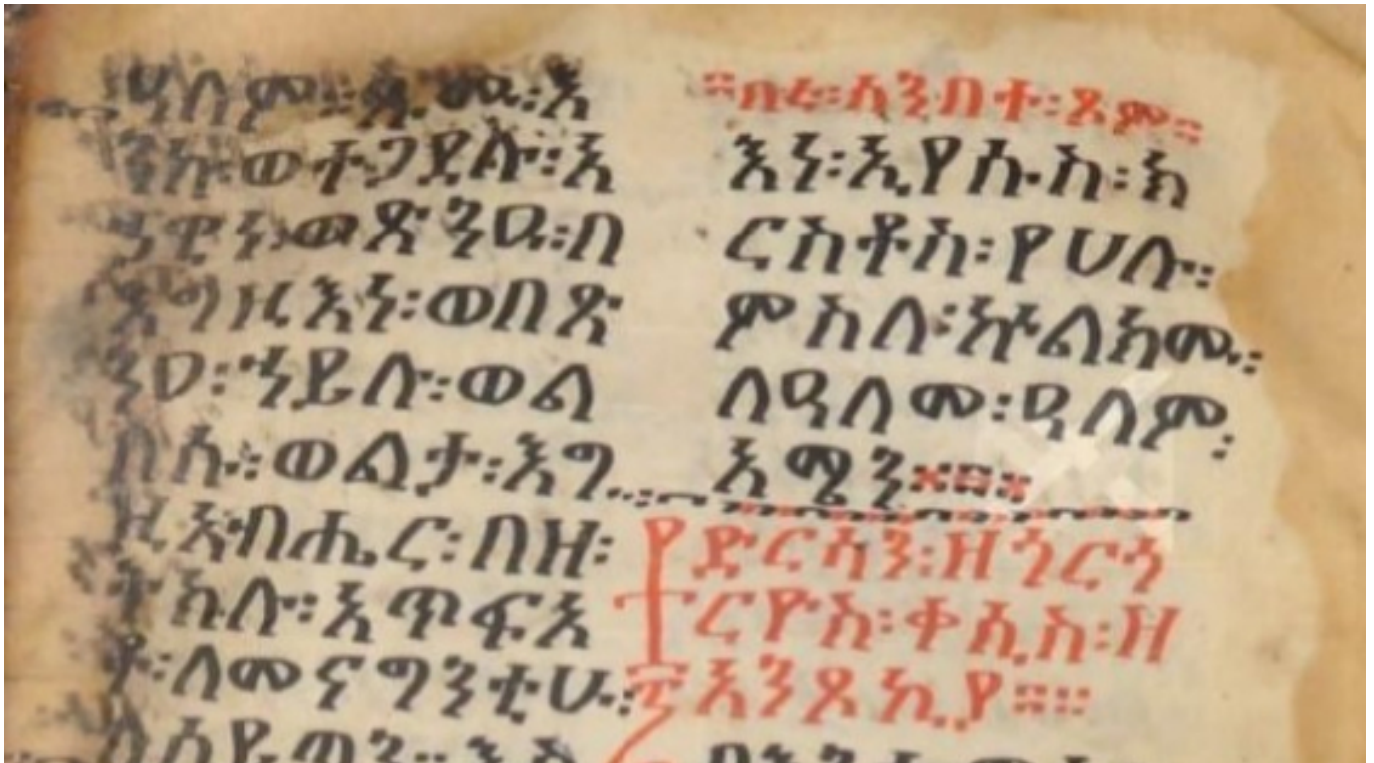 ዓለም፡ጹሙ፡እ
ንከ፡ወተጋደሉ፡፡አ
ኀዊነ፡ወጽንዑ፡በ
እግዚእነ፡ወበጽ
ንዐ፡ኀይሉ፡ወል
በሱ፡ወልታ፡እግ
ዚአብሔር፡በዘ፡
ትክሉ፡አጥፍአ
ቶ፡ለመናግንቲሁ፡
ለሰይጣን፡፡
ሰንበተ፡ጾም።
እነ፡ኢየሱስ፡ክ
ርስቶስ፡የሀሉ፡፡
ምስለ፡ኵልክሙ፡
ለዓለመ፡ዓለም፡
አሜን።
ድርሳን፡ዘጎርጎ
ርዮስ፡ቀሲስ፡ዘ
አንጾኪያ።